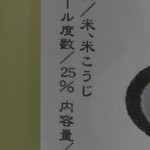 ／米、米こうじ
ール度数／25％ 内容量／